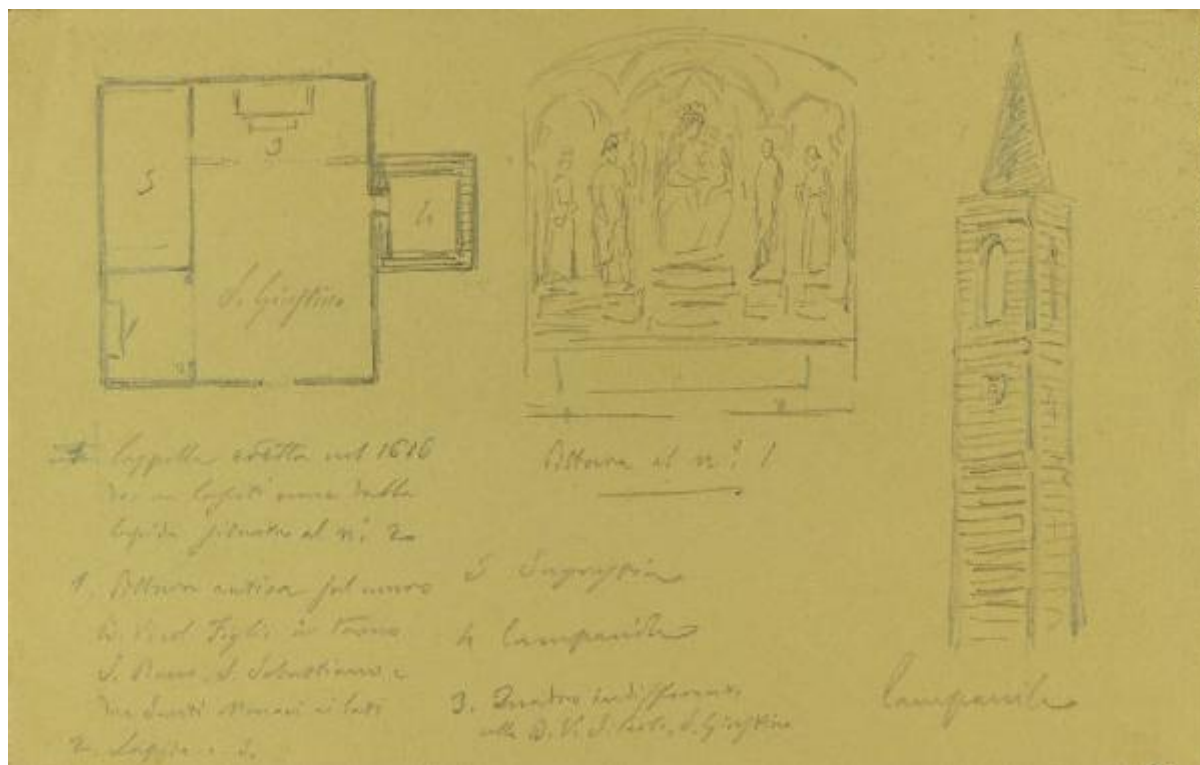 5
3
4
S. Giustino
1
2
Cappella eretta nel 1616
da un dalla
lapida situata al n.º 2
1. Pittura antica sul muro
B. V. col Figlio in Trono
S. Rocco, S. Sebastiano e
due Santi Monaci ai lati
2. Lapide
Pittura al n.º 1
5 Sagrestia
4 Campanile
3. Quadro indifferente
colla B. V. S. Carlo, S. Giustino
Campanile